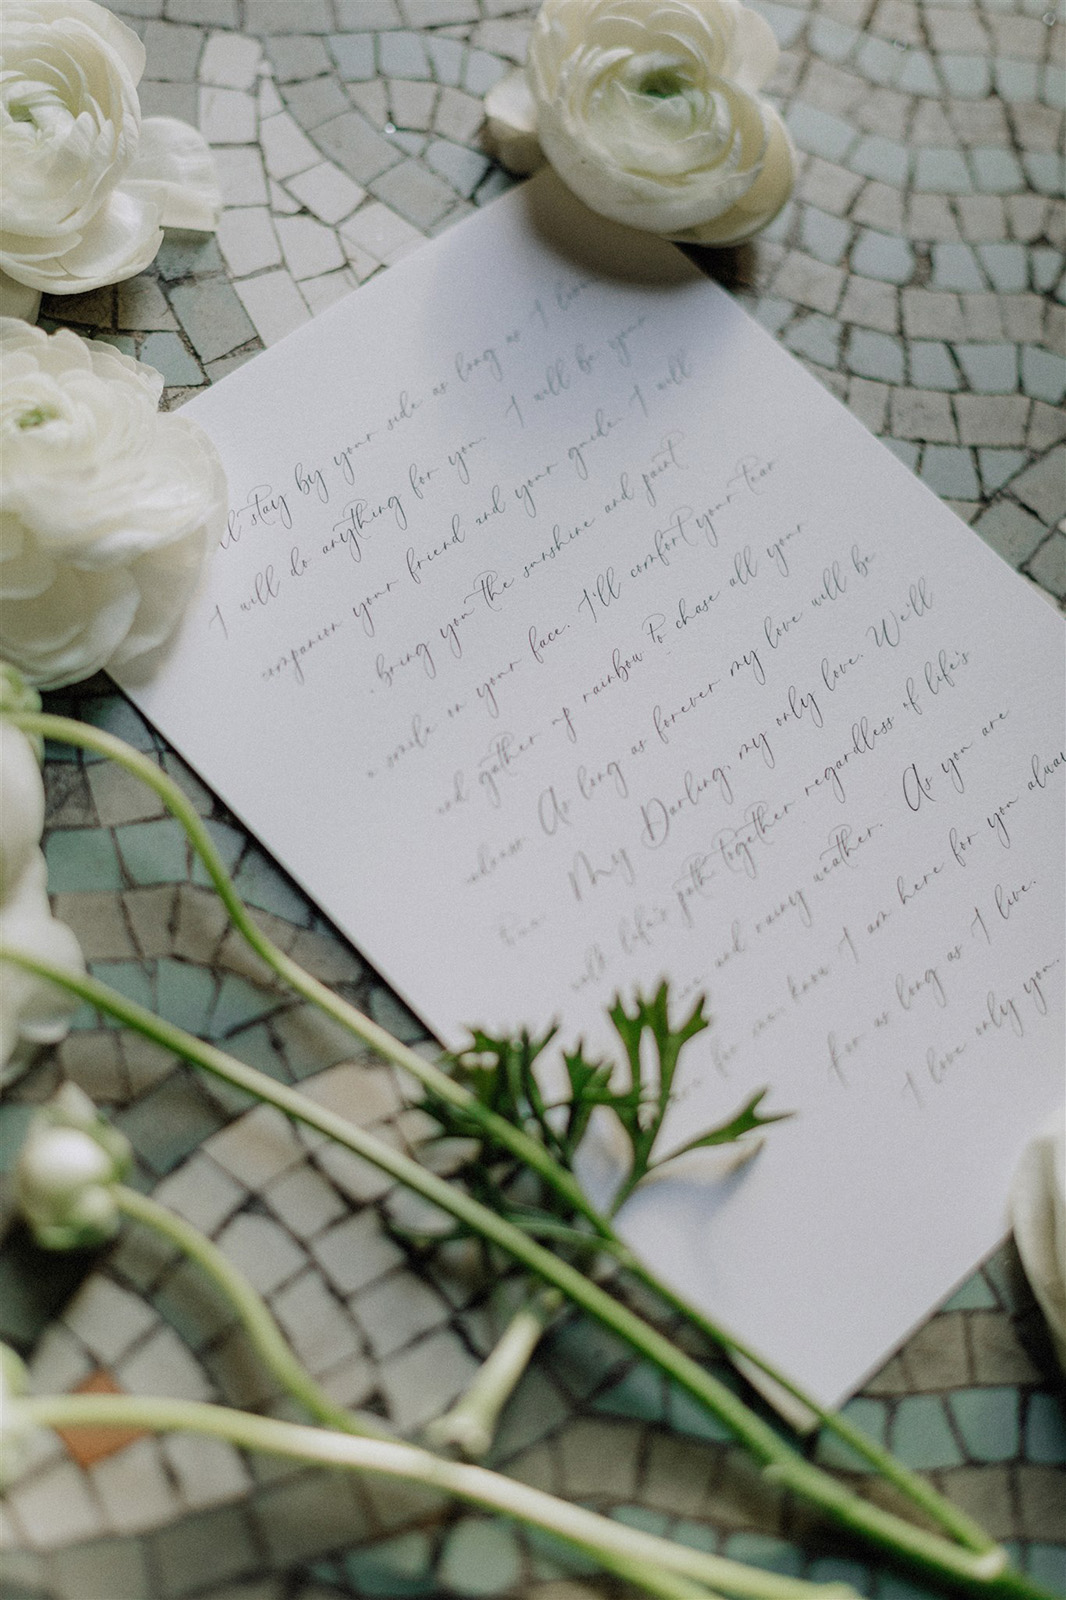 stay by your side as long as I live
I will do anything for you. I will be your
companion your friend and your guide. I will
bring you the sunshine and paint
a smile on your face. I'll comfort your tear
and gather up rainbow to chase all your
As long as forever my love will be
My Darling, my only love. We'll
walk life's path together regardless of life's
and rainy weather. As you are
know I am here for you always
for as long as I live.
I love only you.